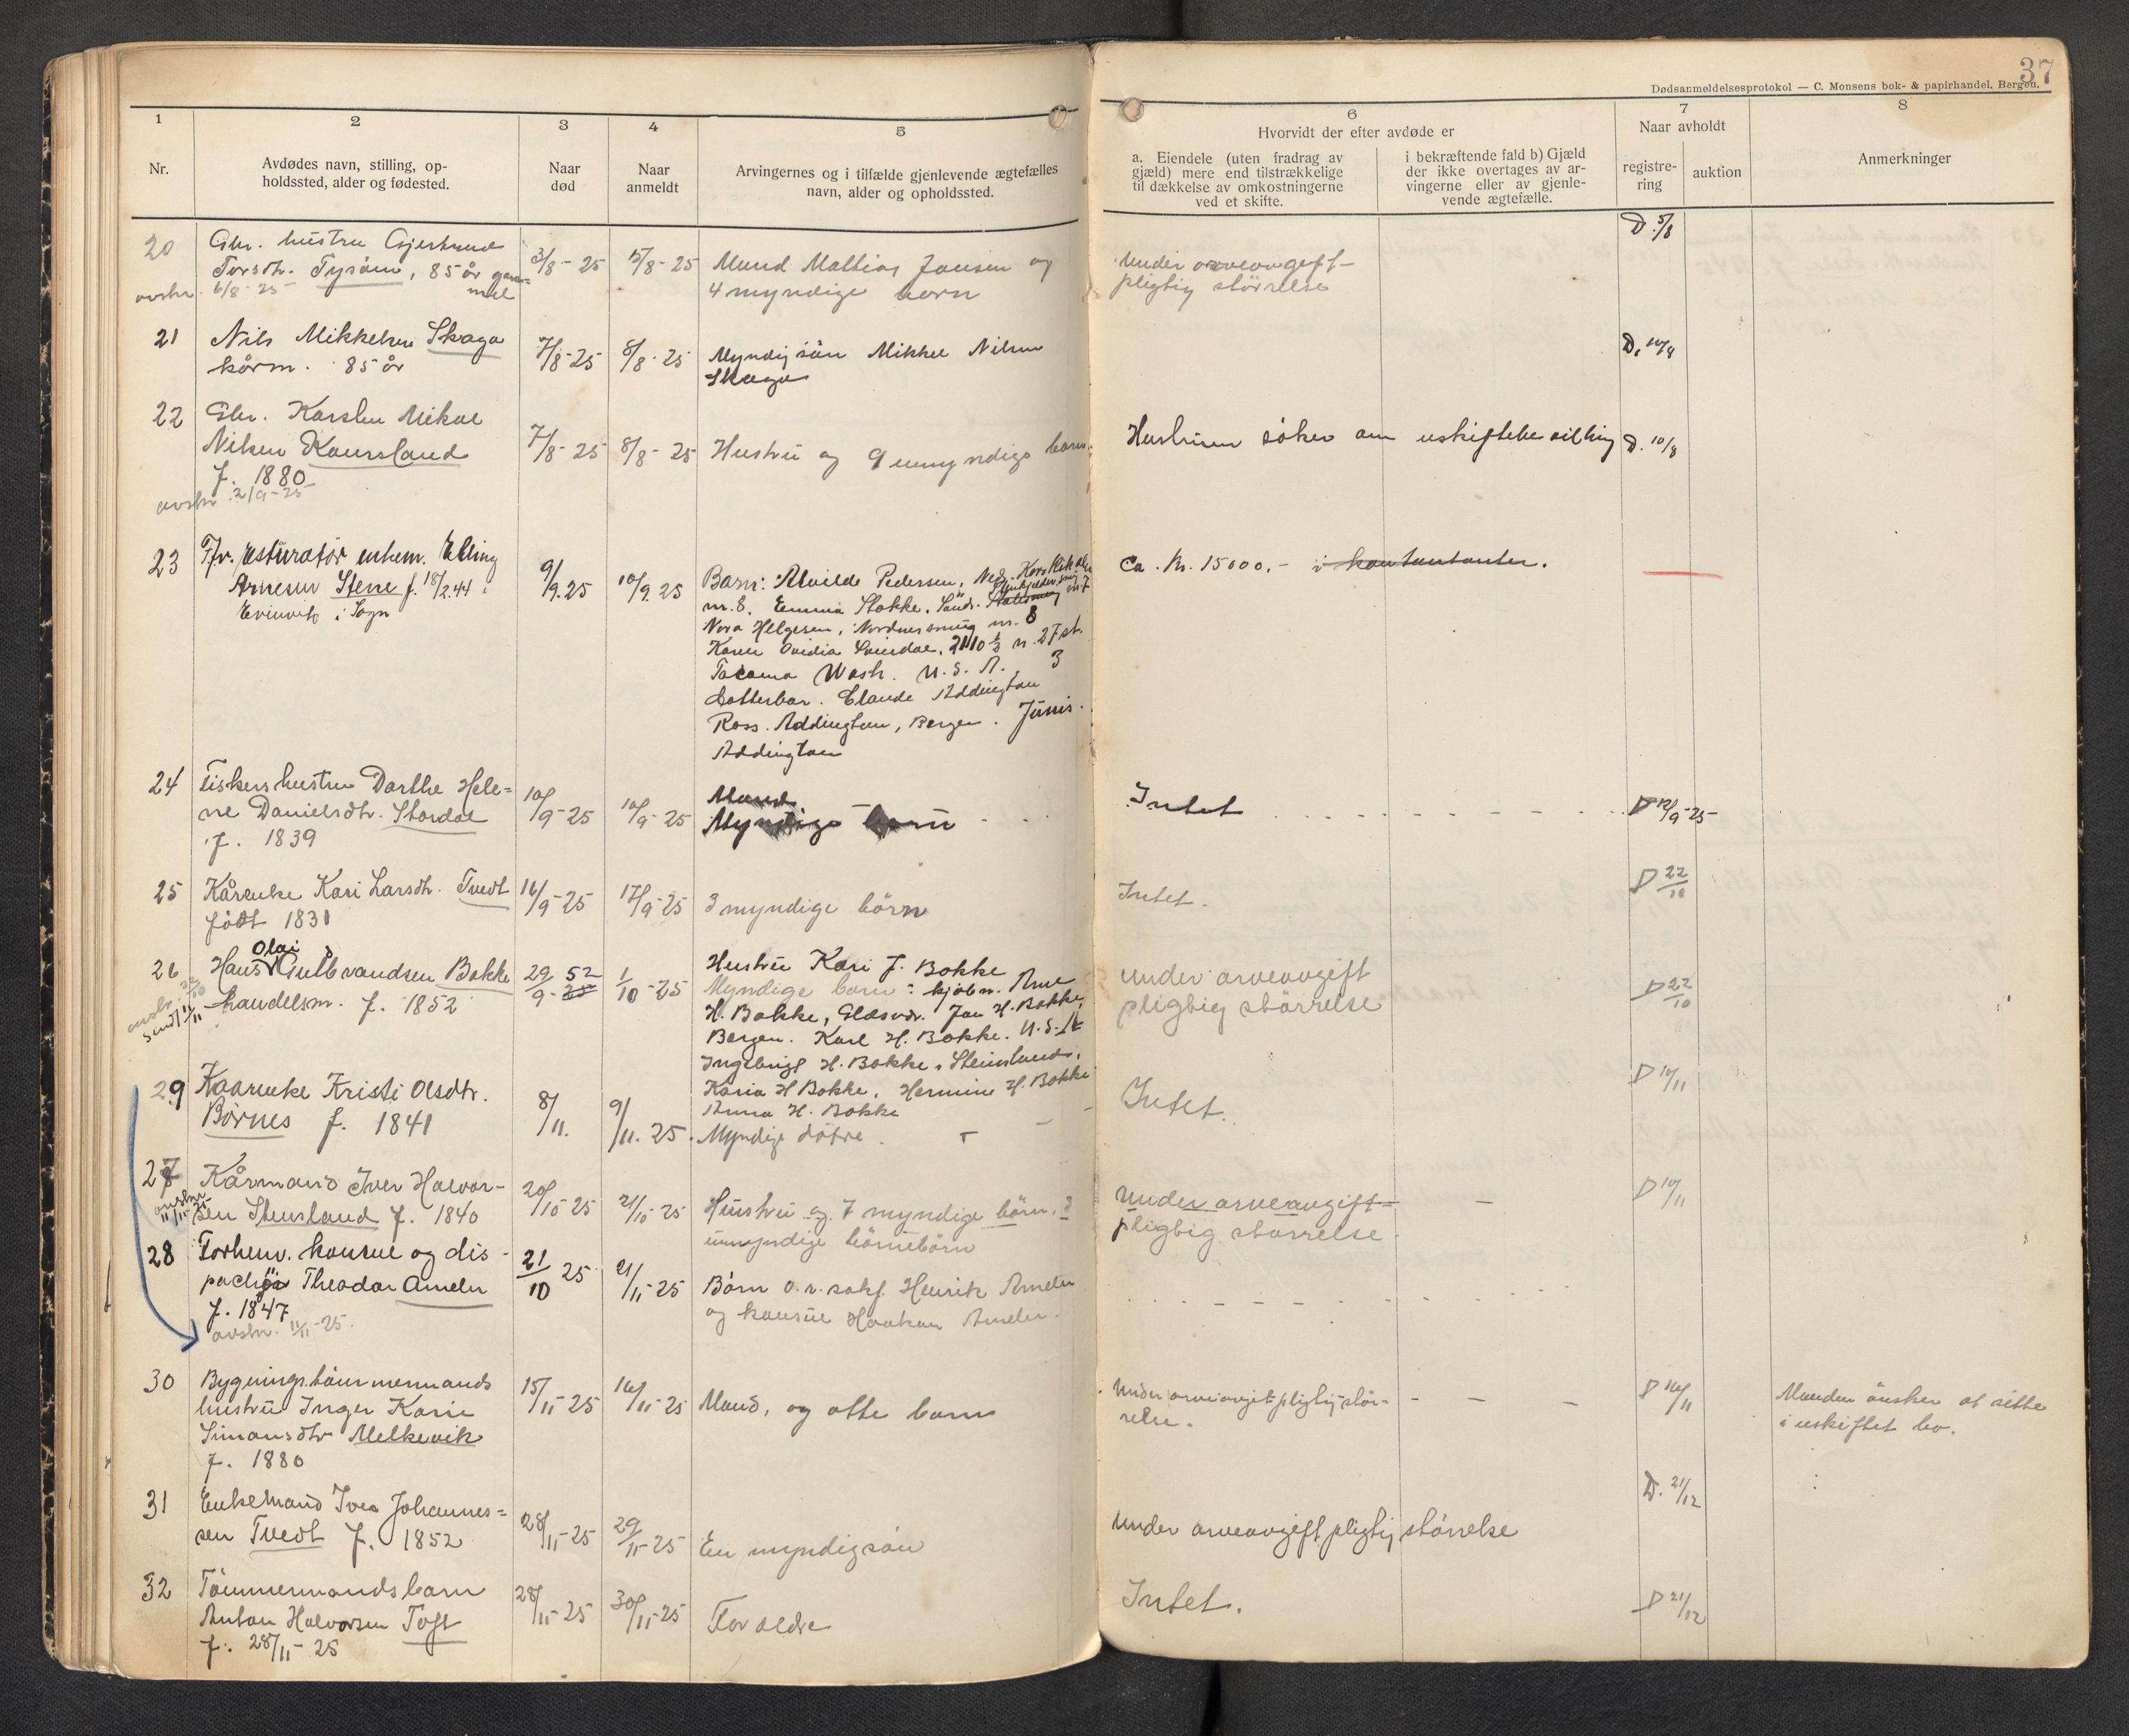 37
Dødsanmeldelsesprotokol — C. Monsens bok- & papirhandel, Bergen.
1 2 3 4 5 6 7 8
Nr.
Avdødes navn, stilling, op-
holdssted, alder og fødested.
Naar
død
Naar
anmeldt
Arvingernes og i tilfælde gjenlevende ægtefælles
navn, alder og opholdssted.
Hvorvidt der efter avdøde er
a. Eiendele (uten fradrag av
gjæld) mere end tilstrækkelige
til dækkelse av omkostningerne
ved et skifte.
i bekræftende fald b) Gjæld
der ikke overtages av ar-
vingerne eller av gjenle-
vende ægtefælle.
Naar avholdt
registre-
ring
auktion
Anmerkninger
20 Gbr. hustru Gjertrud 3/8-25 5/8-25 Mand Mathias Jansen og Under arveavgift- D. 5/8
Torsdtr. Tysöen, 85 år gam-
mel
avskr. 6/8-25
4 myndige barn
pligtig störrelse
21 Nils Mikkelsen Skaga 7/8-25 8/8-25 Myndig sön Mikkel Nilsen D. 10/8
kårm. 85 år
Skaga
22 Gbr. Karsten Mikal
Nilsen Kausland 7/8-25 8/8-25 Hustru og 9 umyndige barn Hustruen söker om uskiftebevilling D. 10/8
f. 1880
avskr. 2/9-25
23 Elling 9/9.25 10/9.25 Barn: Alvilde Pedersen, Ca. Kr. 15000.- i kontantanter.
Arnesen Stene f. 18/2.44
Evinvik i Sogn
nr. 8. Emma Stokke, nr. 7
Nora Helgesen, Nordnessmug nr. 8
Karen Ovidia 2110 ½ n. 27 st.
Tacoma Wash. U.S.A. 3
Dotterbar. Claude Addington
Ross. Addington, Bergen. Junis.
Addington
24 Fiskers hustru Dorthe Hele- 10/9-25 10/9-25 Mand Intet D 12/9-25
ne Danielsdtr. Stordal Myndige barn
f. 1839
25 Kårenke Kari Larsdtr. Tvedt 16/9-25 17/9-25 3 myndige börn Intet. D 22/10
födt 1831
26 Hans Olai Gulbrandsen Bokke 29/9-25 52 1/10-25 Hustru Kari J. Bokke Under arveavgift D 22/10
handelsm. f. 1852
Myndige barn: kjöbm. Arne
pligtig störrelse
H. Bokke, Glesvær. Jan H. Bokke,
Bergen. Karl H. Bokke. U.S.A
Ingebrigt H. Bokke, Steinsland,
Karia H Bokke, Hermine H. Bokke
Anna H. Bokke
29 Kaarenke Kristi Olsdtr. 8/11. 9/11.25. Myndige döttre. Intet. D 10/11
Börnes f. 1841
27 Kårmand Iver Halvor- 20/10-25 21/10-25 Hustru og 7 myndige börn, 3 Under arveavgift- D 10/11
sen Stensland f. 1840
avskr. 11/11-25
umyndige börnebörn
pligtig störrelse
28 Forhenv. konsul og dis- 21/10 25 21/11-25 Börn o.r.sakf. Henrik Ameln
pachör Theodor Ameln og konsul Haakon Ameln.
f. 1847
avskr. 11/11-25.
30 Bygningstömmermands 15/11-25 16/11-25 Mand, og otte barn Under arveavgiftpligtig stör- D 16/11 Manden önsker at sitte
hustru Inger Karie
relse.
i uskiftet bo.
Simonsdtr Melkevik
f. 1880
31 Enkemand Ivar Johannes- 28/11-25 29/11-25 En myndig sön Under arveavgiftpligtig störrelse D. 21/12
sen Tvedt f. 1852
32 Tömmermandsbarn 28/11-25 30/11-25 Foreldre Intet. D 21/12
Anton Halvorsen Toft
f. 28/11-25